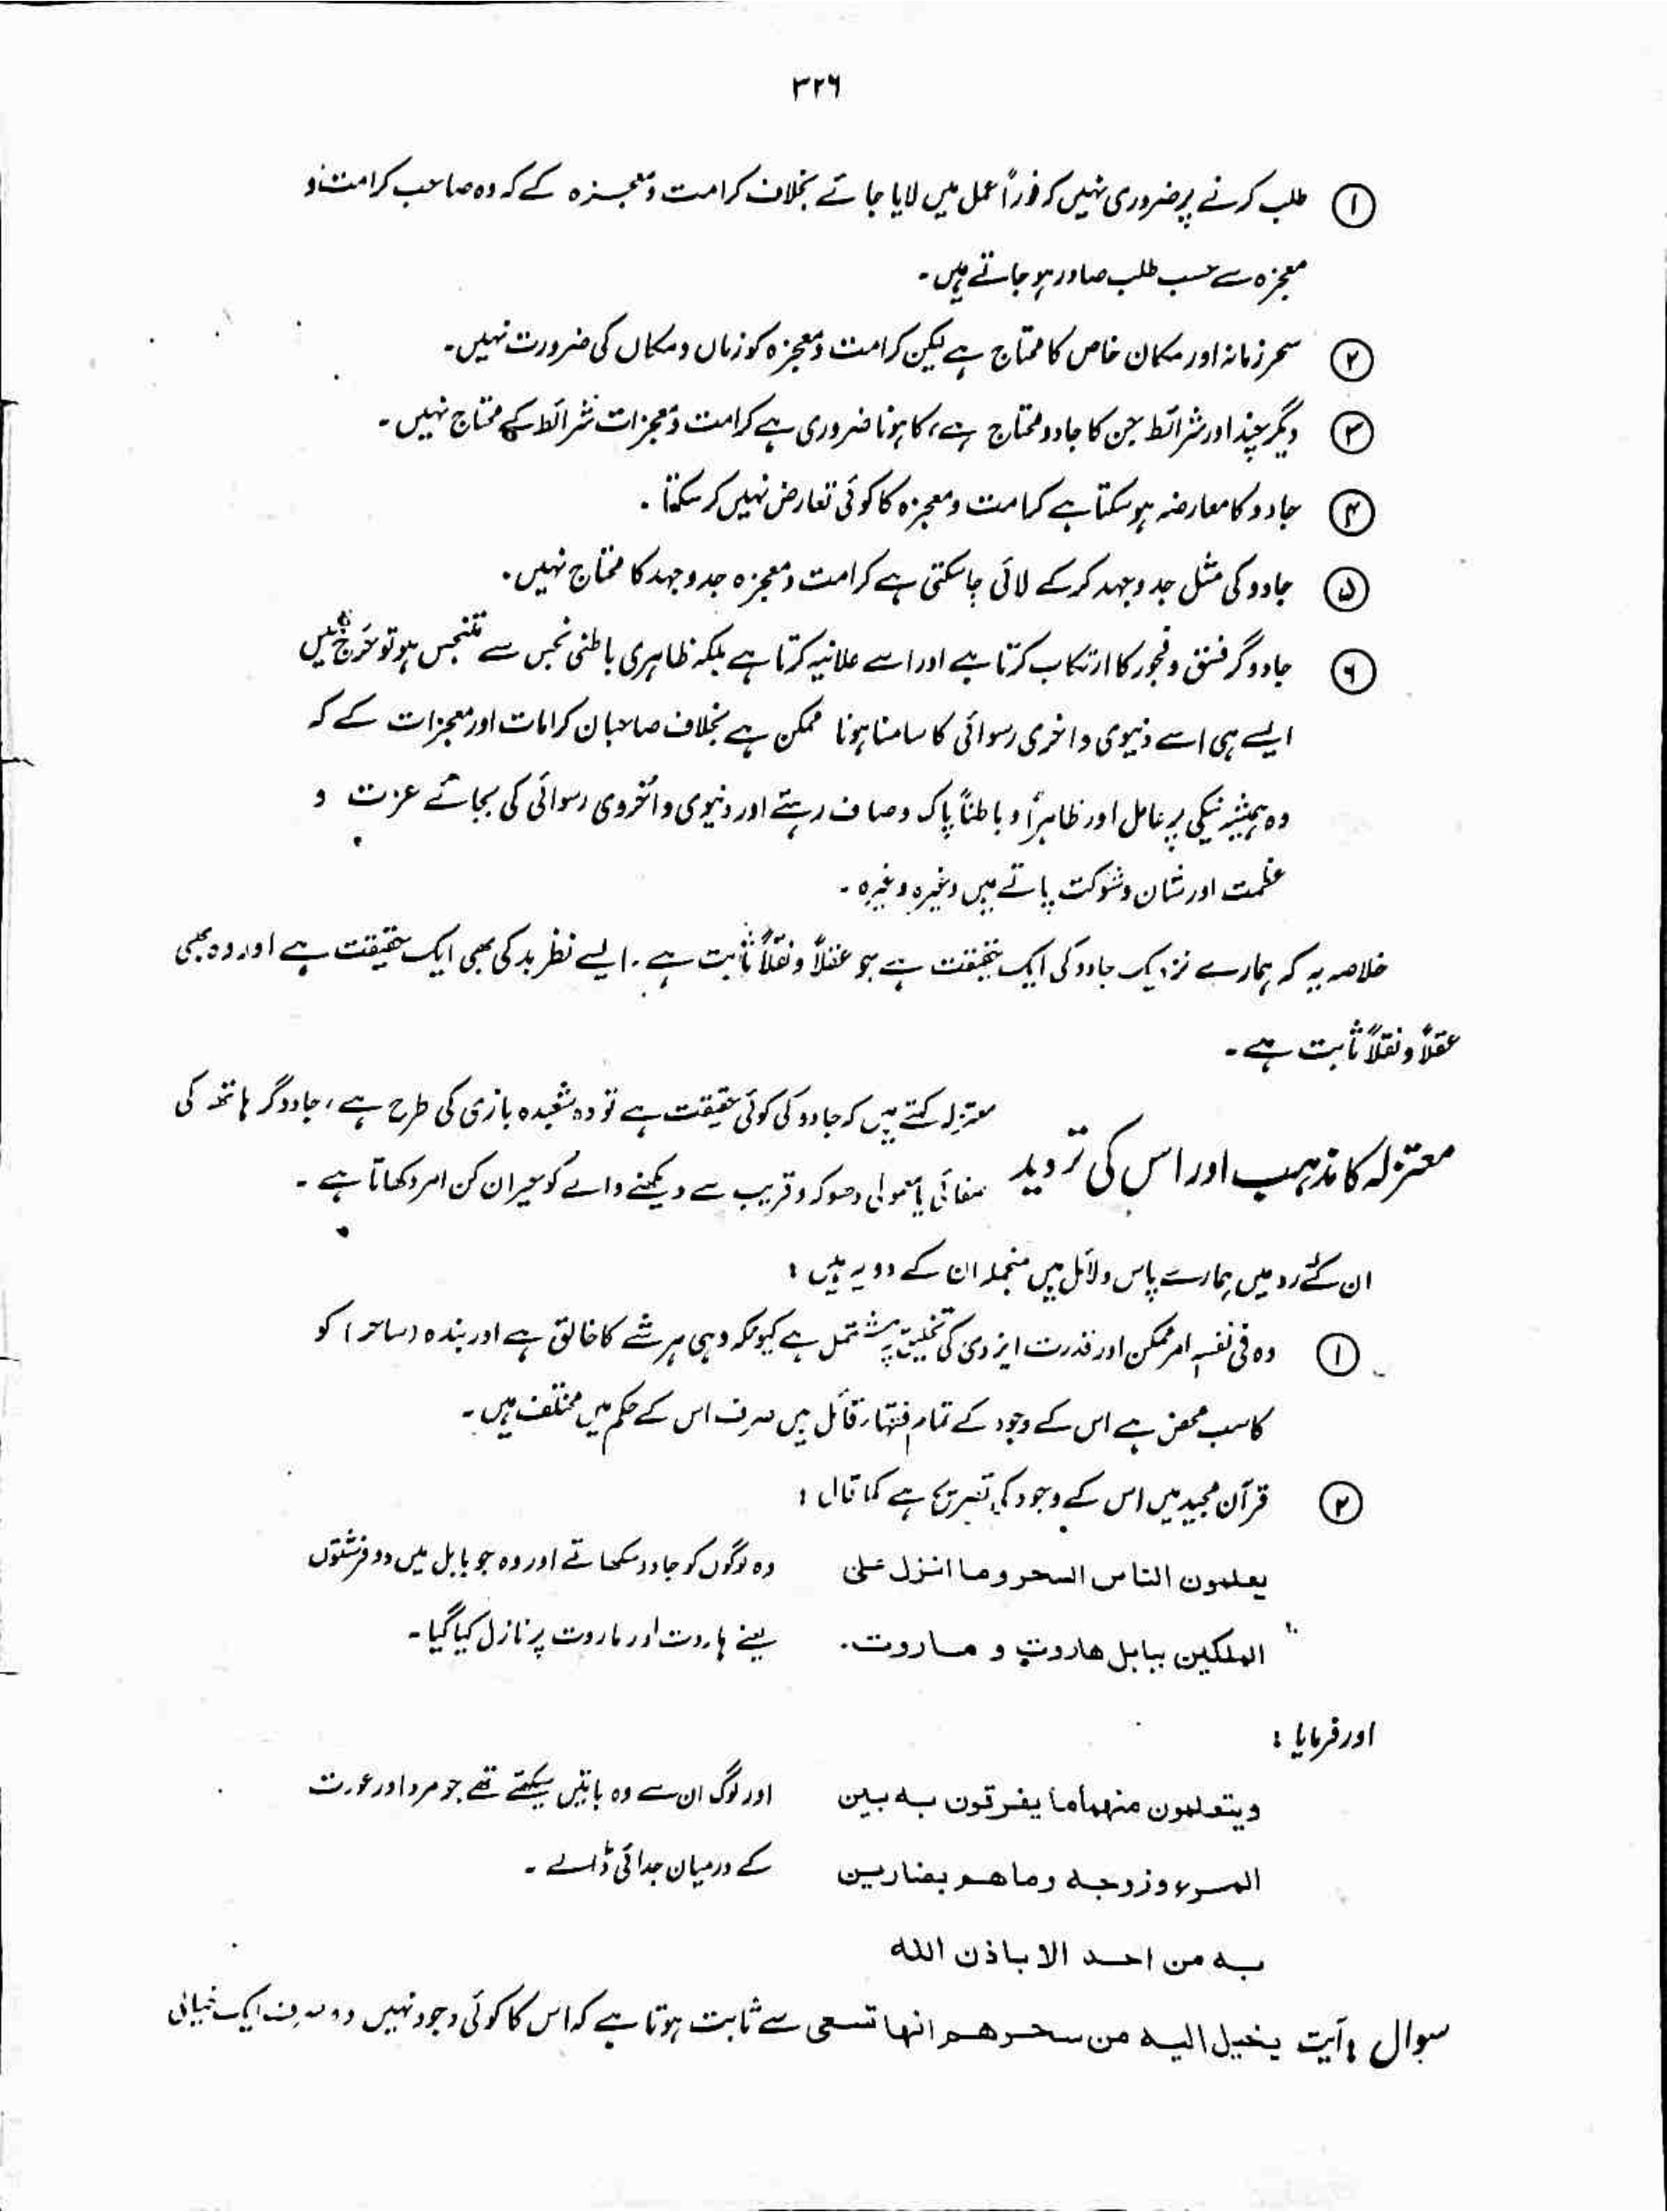 ۳۲۶
① طلب کرنے پر ضروری نہیں کہ فوراً عمل میں لایا جائے بخلاف کرامت و معجزہ کے کہ وہ صاحب کرامت و
معجزہ سے حسب طلب صادر ہو جاتے ہیں۔
② سحر زمانہ اور مکان خاص کا محتاج ہے لیکن کرامت و معجزہ کو زماں و مکاں کی ضرورت نہیں۔
③ دیگر چند اور شرائط جن کا جادو محتاج ہے، کا ہونا ضروری ہے کرامت و معجزات شرائط کے محتاج نہیں۔
④ جادو کا معارضہ ہو سکتا ہے کرامت و معجزہ کا کوئی تعارض نہیں کر سکتا۔
⑤ جادو کی مثل جدوجہد کر کے لائی جا سکتی ہے کرامت و معجزہ جدوجہد کا محتاج نہیں۔
⑥ جادوگر فسق و فجور کا ارتکاب کرتا ہے اور اسے علانیہ کرتا ہے بلکہ ظاہری باطنی نجس سے متنجس ہو تو حَرج نہیں
ایسے ہی اسے دنیوی و اخری رسوائی کا سامنا ہونا ممکن ہے بخلاف صاحبان کرامات اور معجزات کے کہ
وہ ہمیشہ نیکی پر عامل اور ظاہراً و باطناً پاک و صاف رہتے اور دنیوی و اُخروی رسوائی کی بجائے عزت و
عظمت اور شان و شوکت پاتے ہیں وغیرہ وغیرہ۔
خلاصہ یہ کہ ہمارے نزدیک جادو کی ایک حقیقت ہے جو عقلاً و نقلاً ثابت ہے۔ ایسے نظر بد کی بھی ایک حقیقت ہے اور وہ بھی
عقلاً و نقلاً ثابت ہے۔
معتزلہ کا مذہب اور اس کی تردید معتزلہ کہتے ہیں کہ جادو کی کوئی حقیقت ہے تو وہ شعبدہ بازی کی طرح ہے، جادوگر ہاتھ کی
صفائی یا معمولی دھوکہ و فریب سے دیکھنے والے کو حیران کن امر دکھاتا ہے۔
ان کے رد میں ہمارے پاس دلائل ہیں منجملہ ان کے دو یہ ہیں :
① وہ فی نفسہٖ امر ممکن اور قدرت ایزدی کی تخلیق پر مشتمل ہے کیونکہ وہی ہر شے کا خالق ہے اور بندہ (ساحر) کو
کاسب محض ہے اس کے وجود کے تمام فقہاء قائل ہیں صرف اس کے حکم میں مختلف ہیں۔
② قرآن مجید میں اس کے وجود کی تصریح ہے کما قال :
یعلمون الناس السحر وما انزل علی وہ لوگوں کو جادو سکھاتے اور وہ جو بابل میں دو فرشتوں
الملکین ببابل ھاروت و ماروت۔ یعنے ہاروت اور ماروت پر نازل کیا گیا۔
اور فرمایا :
ویتعلمون منھما ما یفرقون بہ بین اور لوگ ان سے وہ باتیں سیکھتے تھے جو مرد اور عورت
المرء وزوجہ وما ھم بضارین کے درمیان جدائی ڈالے۔
بہ من احد الا باذن اللہ
سوال : آیت یخیل الیہ من سحرھم انھا تسعی سے ثابت ہوتا ہے کہ اس کا کوئی وجود نہیں وہ صرف ایک خیالی